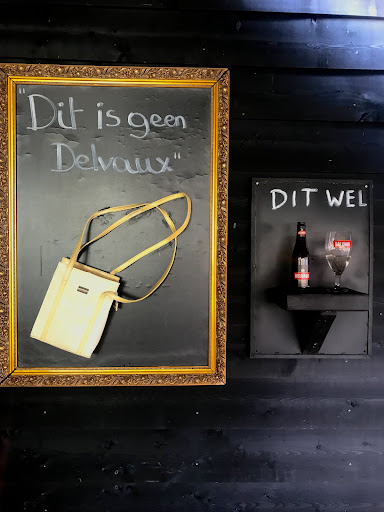 "Dit is geen
Delvaux"
DIT WEL